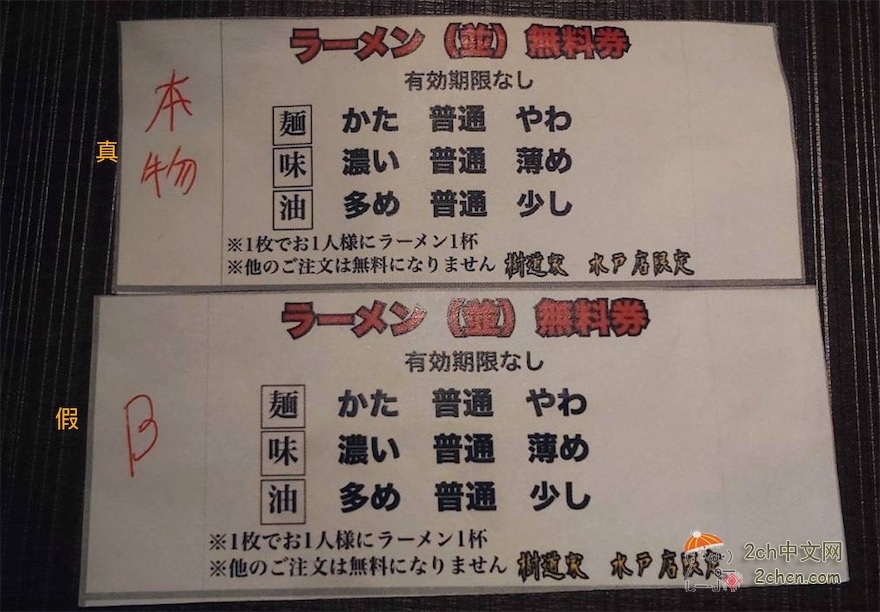 ラーメン（並）無料券
有効期限なし
本物
真
麺 かた 普通 やわ
味 濃い 普通 薄め
油 多め 普通 少し
※1枚でお1人様にラーメン1杯
※他のご注文は無料になりません 樹道家 水戸店限定
ラーメン（並）無料券
有効期限なし
假
B
麺 かた 普通 やわ
味 濃い 普通 薄め
油 多め 普通 少し
※1枚でお1人様にラーメン1杯
※他のご注文は無料になりません 樹道家 水戸店限定
2ch中文网
2chcn.com